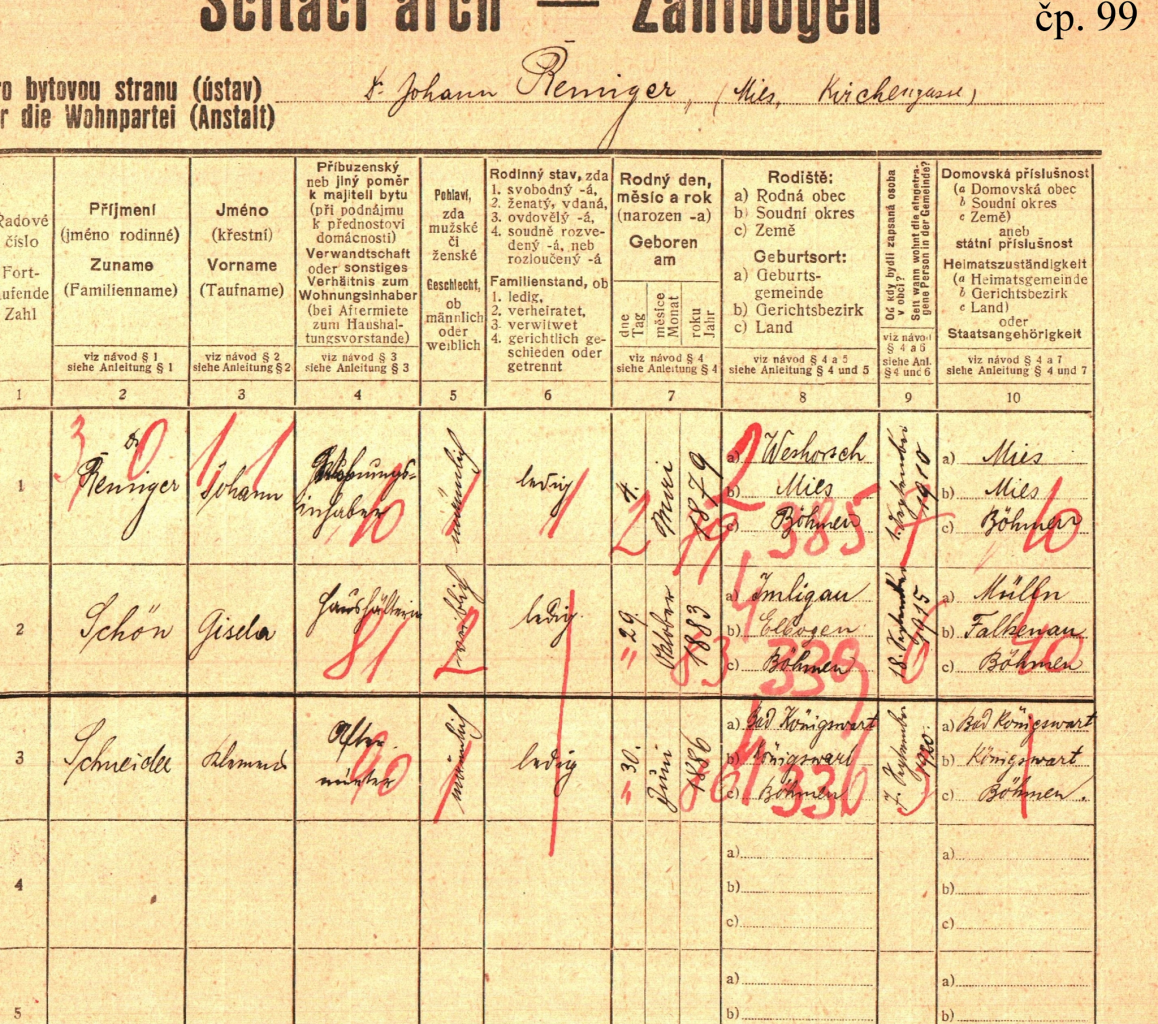 Sčítací arch — Zählbogen
čp. 99
ro bytovou stranu (ústav)
r die Wohnpartei (Anstalt)
Dr Johann Reniger, (Mies, Kirchengasse)
Řadové
číslo
Fort-
ufende
Zahl
1
Příjmení
(jméno rodinné)
Zuname
(Familienname)
viz návod § 1
siehe Anleitung § 1
2
Jméno
(křestní)
Vorname
(Taufname)
viz návod § 2
siehe Anleitung § 2
3
Příbuzenský
neb jiný poměr
k majiteli bytu
(při podnájmu
k přednostovi
domácnosti)
Verwandtschaft
oder sonstiges
Verhältnis zum
Wohnungsinhaber
(bei Aftermiete
zum Haushal-
tungsvorstande)
viz návod § 3
siehe Anleitung § 3
4
Pohlaví,
zda
mužské
či
ženské
Geschlecht,
ob
männlich
oder
weiblich
5
Rodinný stav, zda
1. svobodný -á,
2. ženatý, vdaná,
3. ovdovělý -á,
4. soudně rozve-
dený -á, neb
rozloučený -á
Familienstand, ob
1. ledig,
2. verheiratet,
3. verwitwet
4. gerichtlich ge-
schieden oder
getrennt
6
Rodný den,
měsíc a rok
(narozen -a)
Geboren
am
dne
Tag
měsíce
Monat
roku
Jahr
viz návod § 4
siehe Anleitung § 4
7
Rodiště:
a) Rodná obec
b) Soudní okres
c) Země
Geburtsort:
a) Geburts-
gemeinde
b) Gerichtsbezirk
c) Land
viz návod § 4 a 5
siehe Anleitung § 4 und 5
8
Od kdy bydlí zapsaná osoba
v obci?
Seit wann wohnt die eingetra-
gene Person in der Gemeinde?
viz návod
§ 4 a 6
siehe Anl.
§ 4 und 6
9
Domovská příslušnost
(a Domovská obec
b Soudní okres
c Země)
aneb
státní příslušnost
Heimatszuständigkeit
(a Heimatsgemeinde
b Gerichtsbezirk
c Land)
oder
Staatsangehörigkeit
viz návod § 4 a 7
siehe Anleitung § 4 und 7
10
1
Dr
Reniger
Johann
Wohnungs-
inhaber
männlich
ledig
4.
1879
a) Weshorsch
b) Mies
c) Böhmen
1. September
1910
a) Mies
b) Mies
c) Böhmen
3 0
1 1
10
1
1
2
79
2
385
7
10
2
Schön
Gisela
Haushälterin
weiblich
ledig
29.
Oktober
1883
a) Imligau
b) Elbogen
c) Böhmen
18. September
1915
a) Mülln
b) Falkenau
c) Böhmen
81
2
83
4
339
6
40
3
Schneider
Klemens
After
mieter
männlich
ledig
30.
Juni
1886
a) Bad Königswart
b) Königswart
c) Böhmen
7. September
1920.
a) Bad Königswart
b) Königswart
c) Böhmen.
90
336
4
a)
b)
c)
a)
b)
c)
5
a)
b)
a)
b)